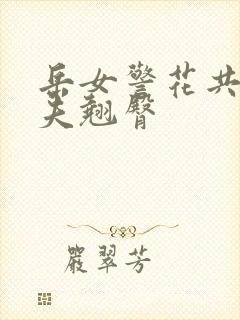 岳女警花共
夫翘臀
嚴翠芳